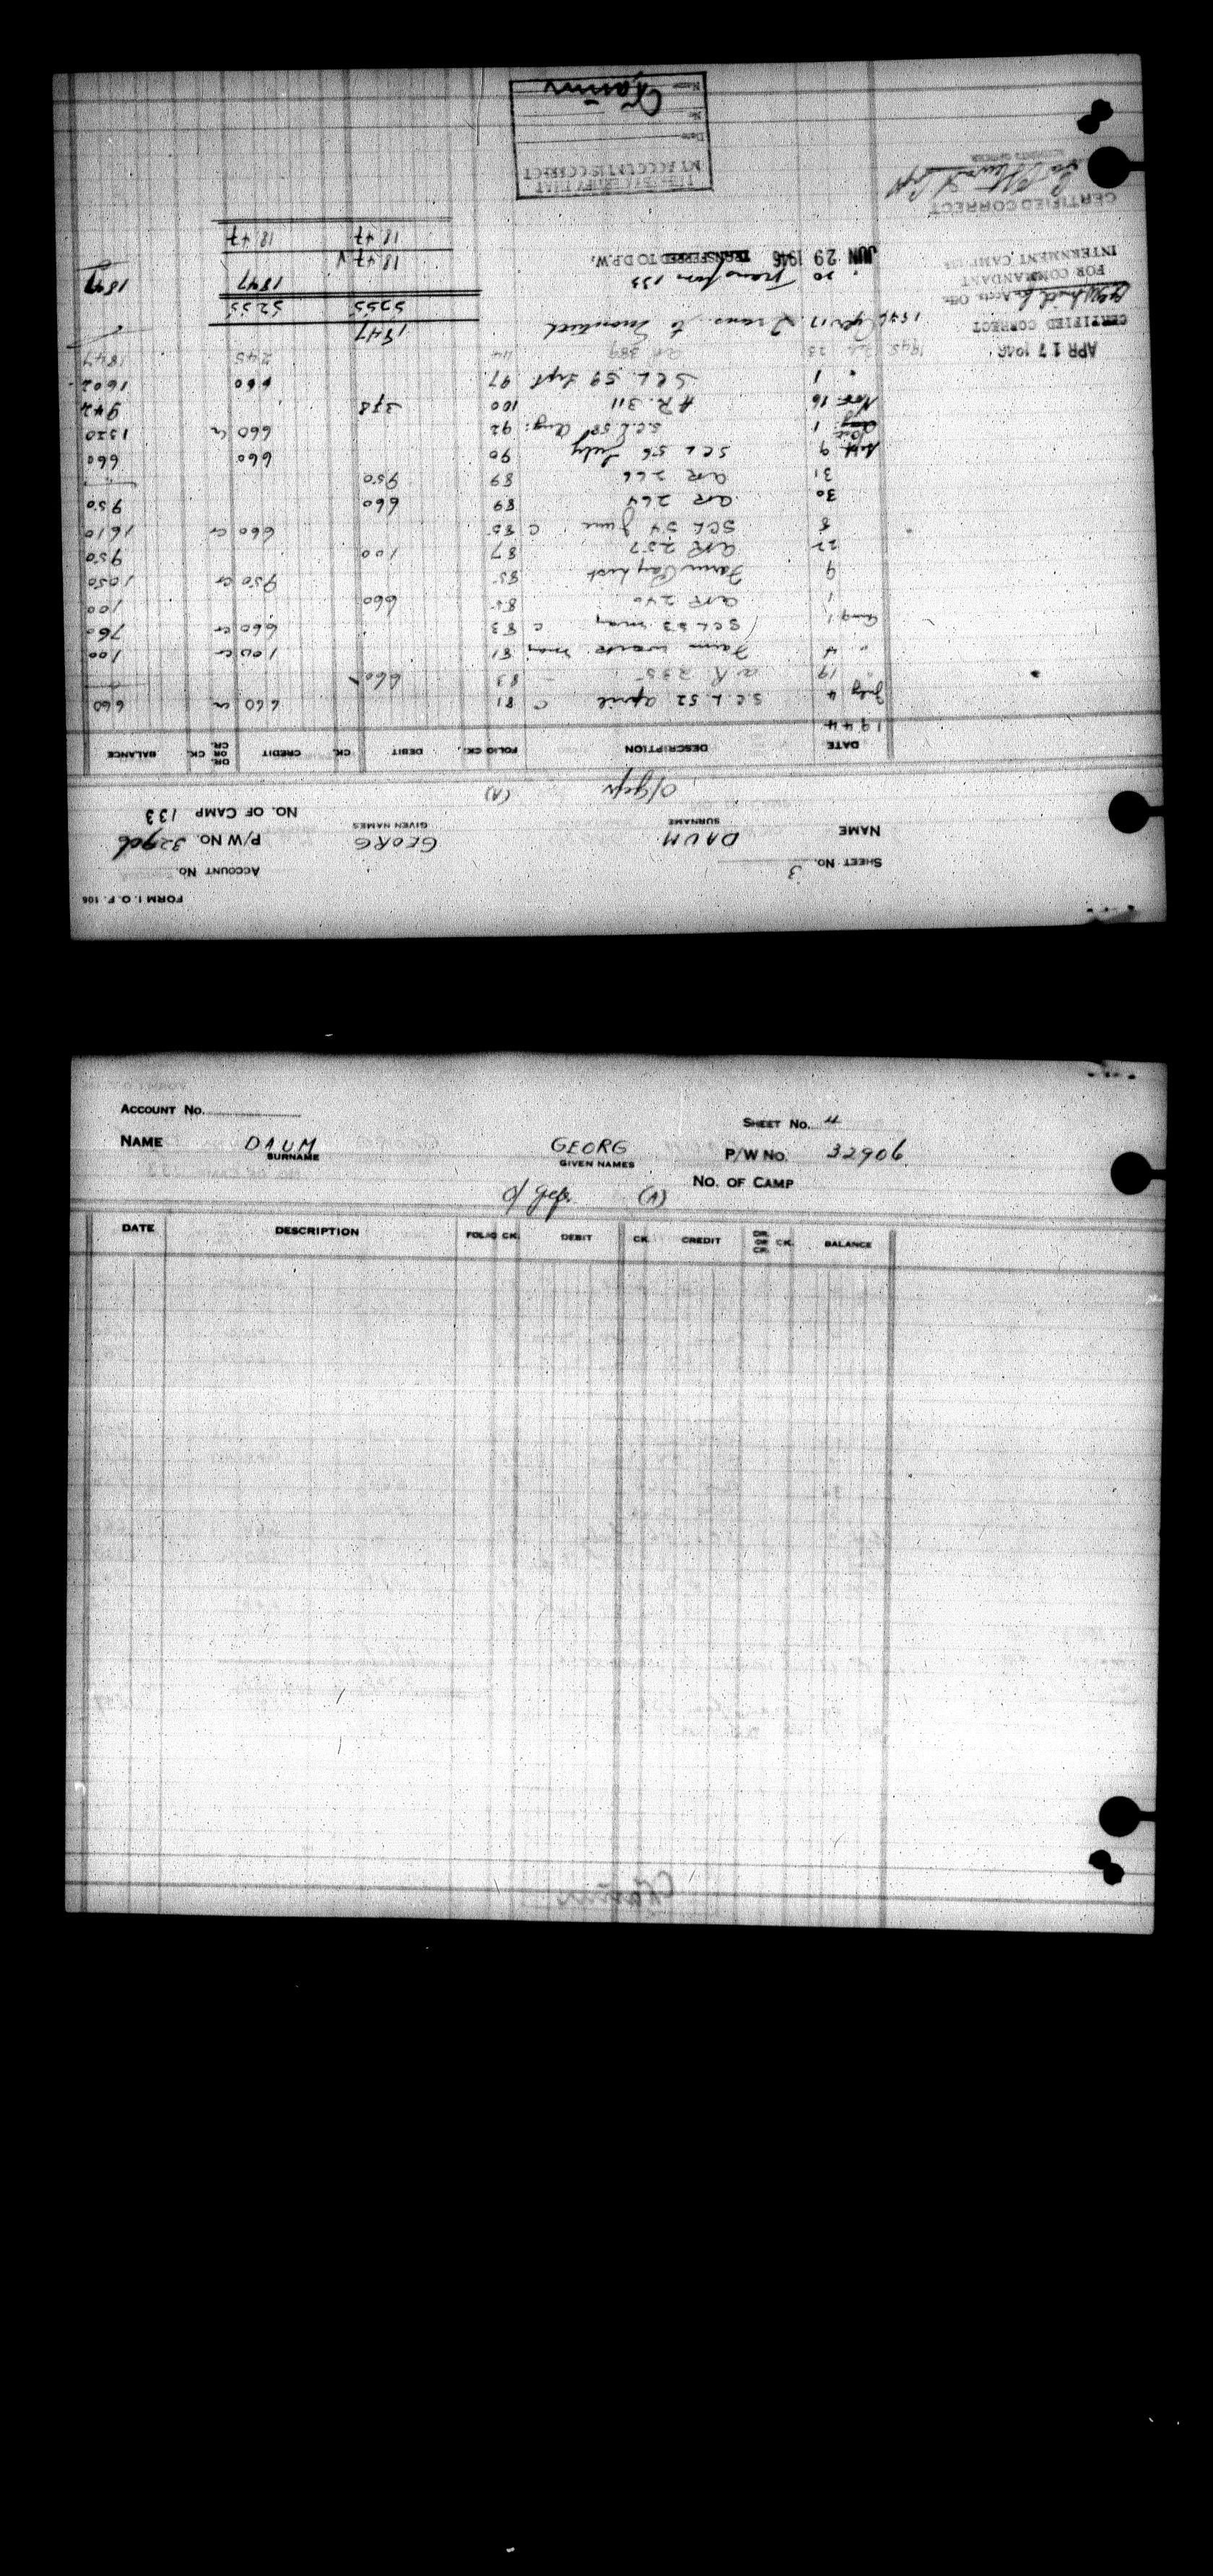 FORM I. O. F. 106
ACCOUNT No.
SHEET No. 3
NAME DAUM GEORG P/W No. 32906
SURNAME GIVEN NAMES
NO. OF CAMP 133
O/Gefr (A)
DATE DESCRIPTION FOLIO CK. DEBIT CK. CREDIT DR. OR CR. CK. BALANCE
1944
July 4 S.C.L. 52 April C 81 660 cr 660
" 19 A.R. 235 83 660
" 4 Farm work may 81 100 cr 100
Aug 1 SCL 53 may C 83 660 cr 760
1 A/R 240 85 660 100
9 Farm Pay List 85 950 cr 1050
22 A/R 257 87 100 950
8 SCL 54 June C 85 660 cr 1610
30 A/R 264 89 660 950
31 A/R 266 89 950
Sept 9 SCL 56 July 90 660 660
1 S.C.L 58 Aug: 92 660 cr 1320
Nov 16 A.R. 311 100 378 942
" 1 SCL. 59 Sept 97 660 1602
1945 23 AR 389 44 245 1847
APR 17 1946
CERTIFIED CORRECT
1946 Apr 17 Trans. to 1847
Accts. Off.
FOR COMMANDANT
INTERNMENT CAMP
5255 5255
" 20 Trans from 133 1847 1847
JUN 29 1946 TRANSFERRED TO D.P.W. 18 47
18 47 18 47
CERTIFIED CORRECT
ACCOUNTS OFFICER
I HEREBY CERTIFY THAT
MY ACCOUNT IS CORRECT
Date
No
Name Daum
ACCOUNT No.
SHEET No. 4
NAME DAUM GEORG P/W No. 32906
SURNAME GIVEN NAMES
NO. OF CAMP
O/Gefr. (A)
DATE DESCRIPTION FOLIO CK. DEBIT CK. CREDIT DR. OR CR. CK. BALANCE